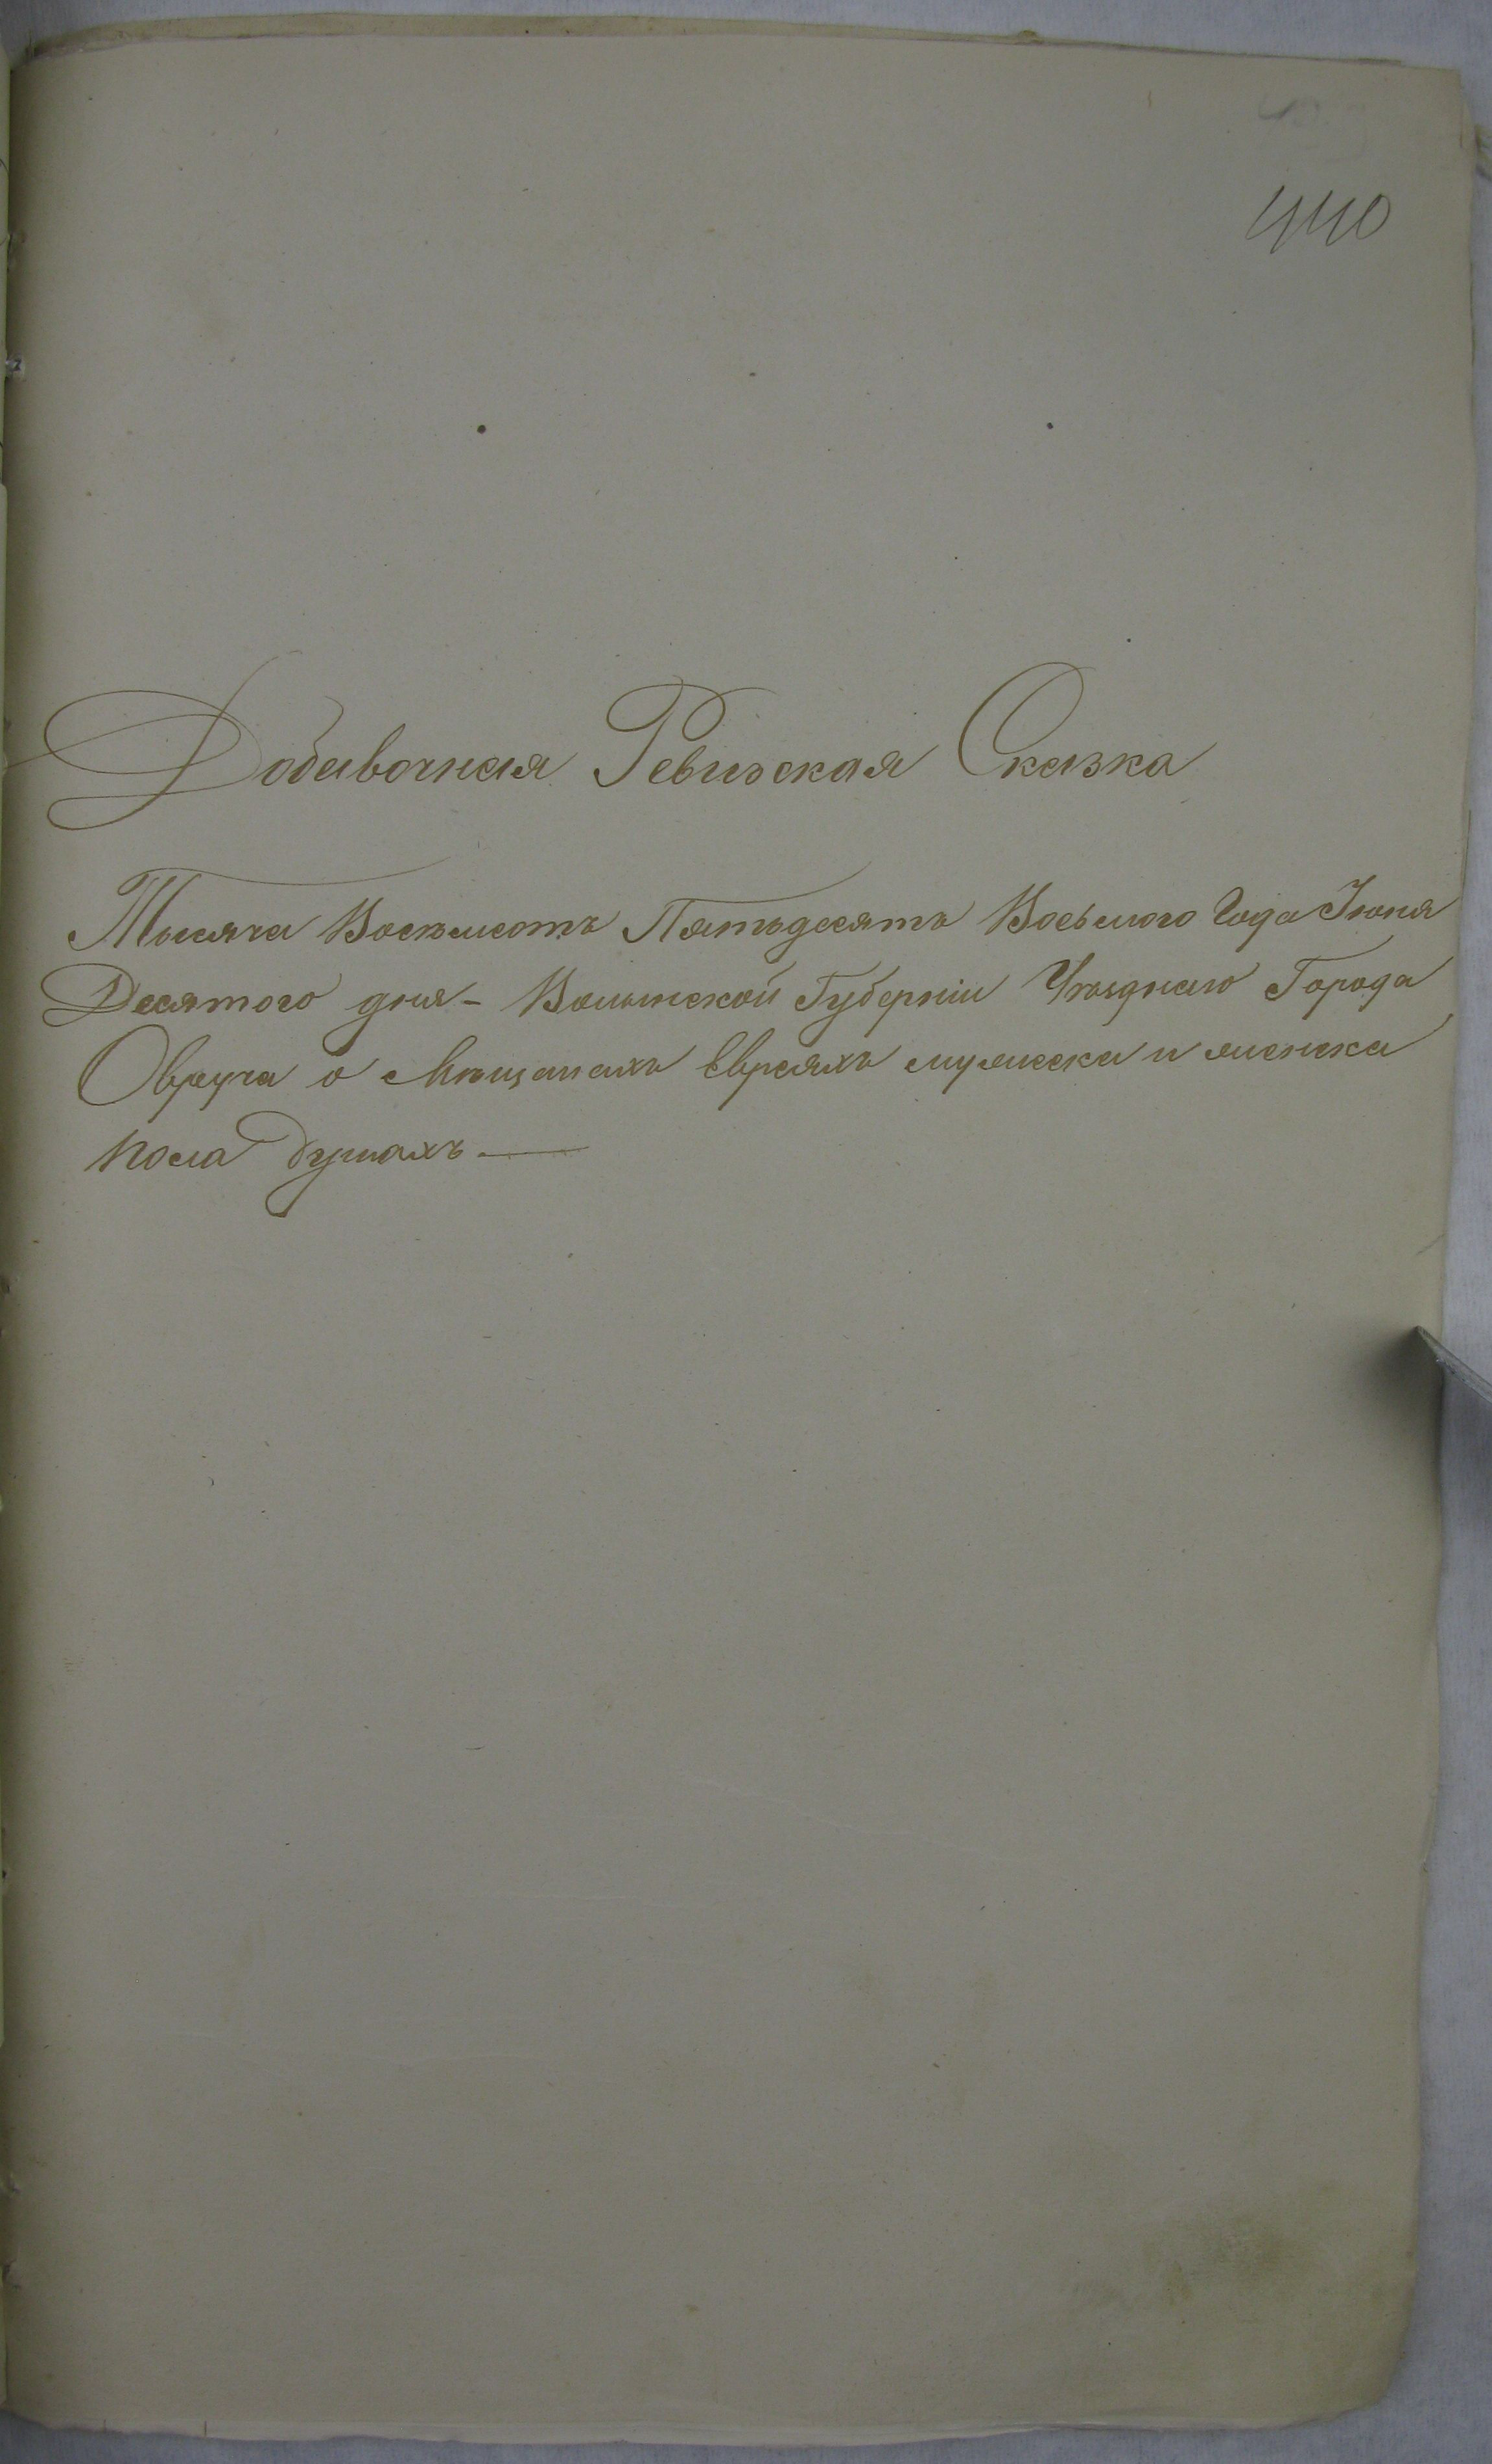 440
Добавочная Ревизская Сказка
Тысяча Восемьсотъ Пятьдесятъ Восьмого Года Іюня
Десятого дня - Волынской Губерніи Уѣзднаго Города
Овруча о Мѣщанахъ Евреяхъ мужеска и женска
пола душахъ —